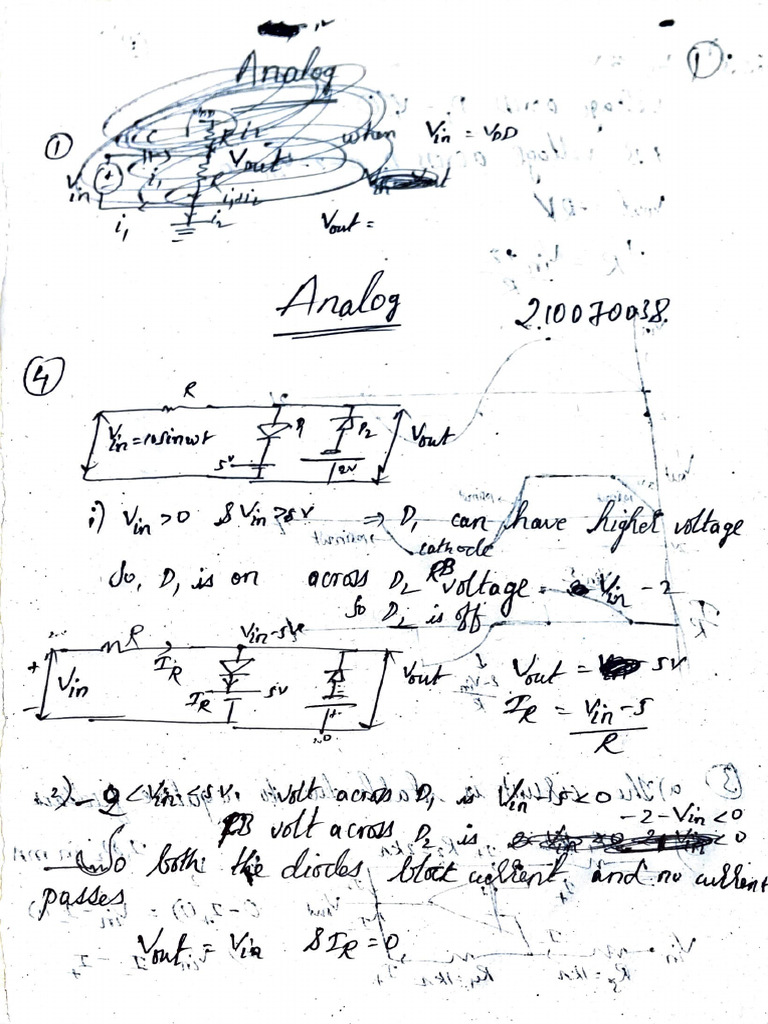 Analog
①
when Vin = VDD
Vout
Vin
i1
i2
Vout =
Analog
210070038.
④
R
Vin = 10sinwt
D2
Vout
5V
2V
i) Vin > 0 & Vin > 5V ⇒ D1 can have higher voltage
cathode
So, D1 is on across D2 RB voltage = Vin - 2
So D2 is off
R
Vin-5V
IR
Vin
IR
5V
Vout
Vout = 5V
IR = Vin - 5
R
2) -2 < Vin < 5V. volt across D1 is Vin - 5 < 0
-2-Vin < 0
RB volt across D2 is
So both the diodes block current and no current
passes
Vout = Vin & IR = 0